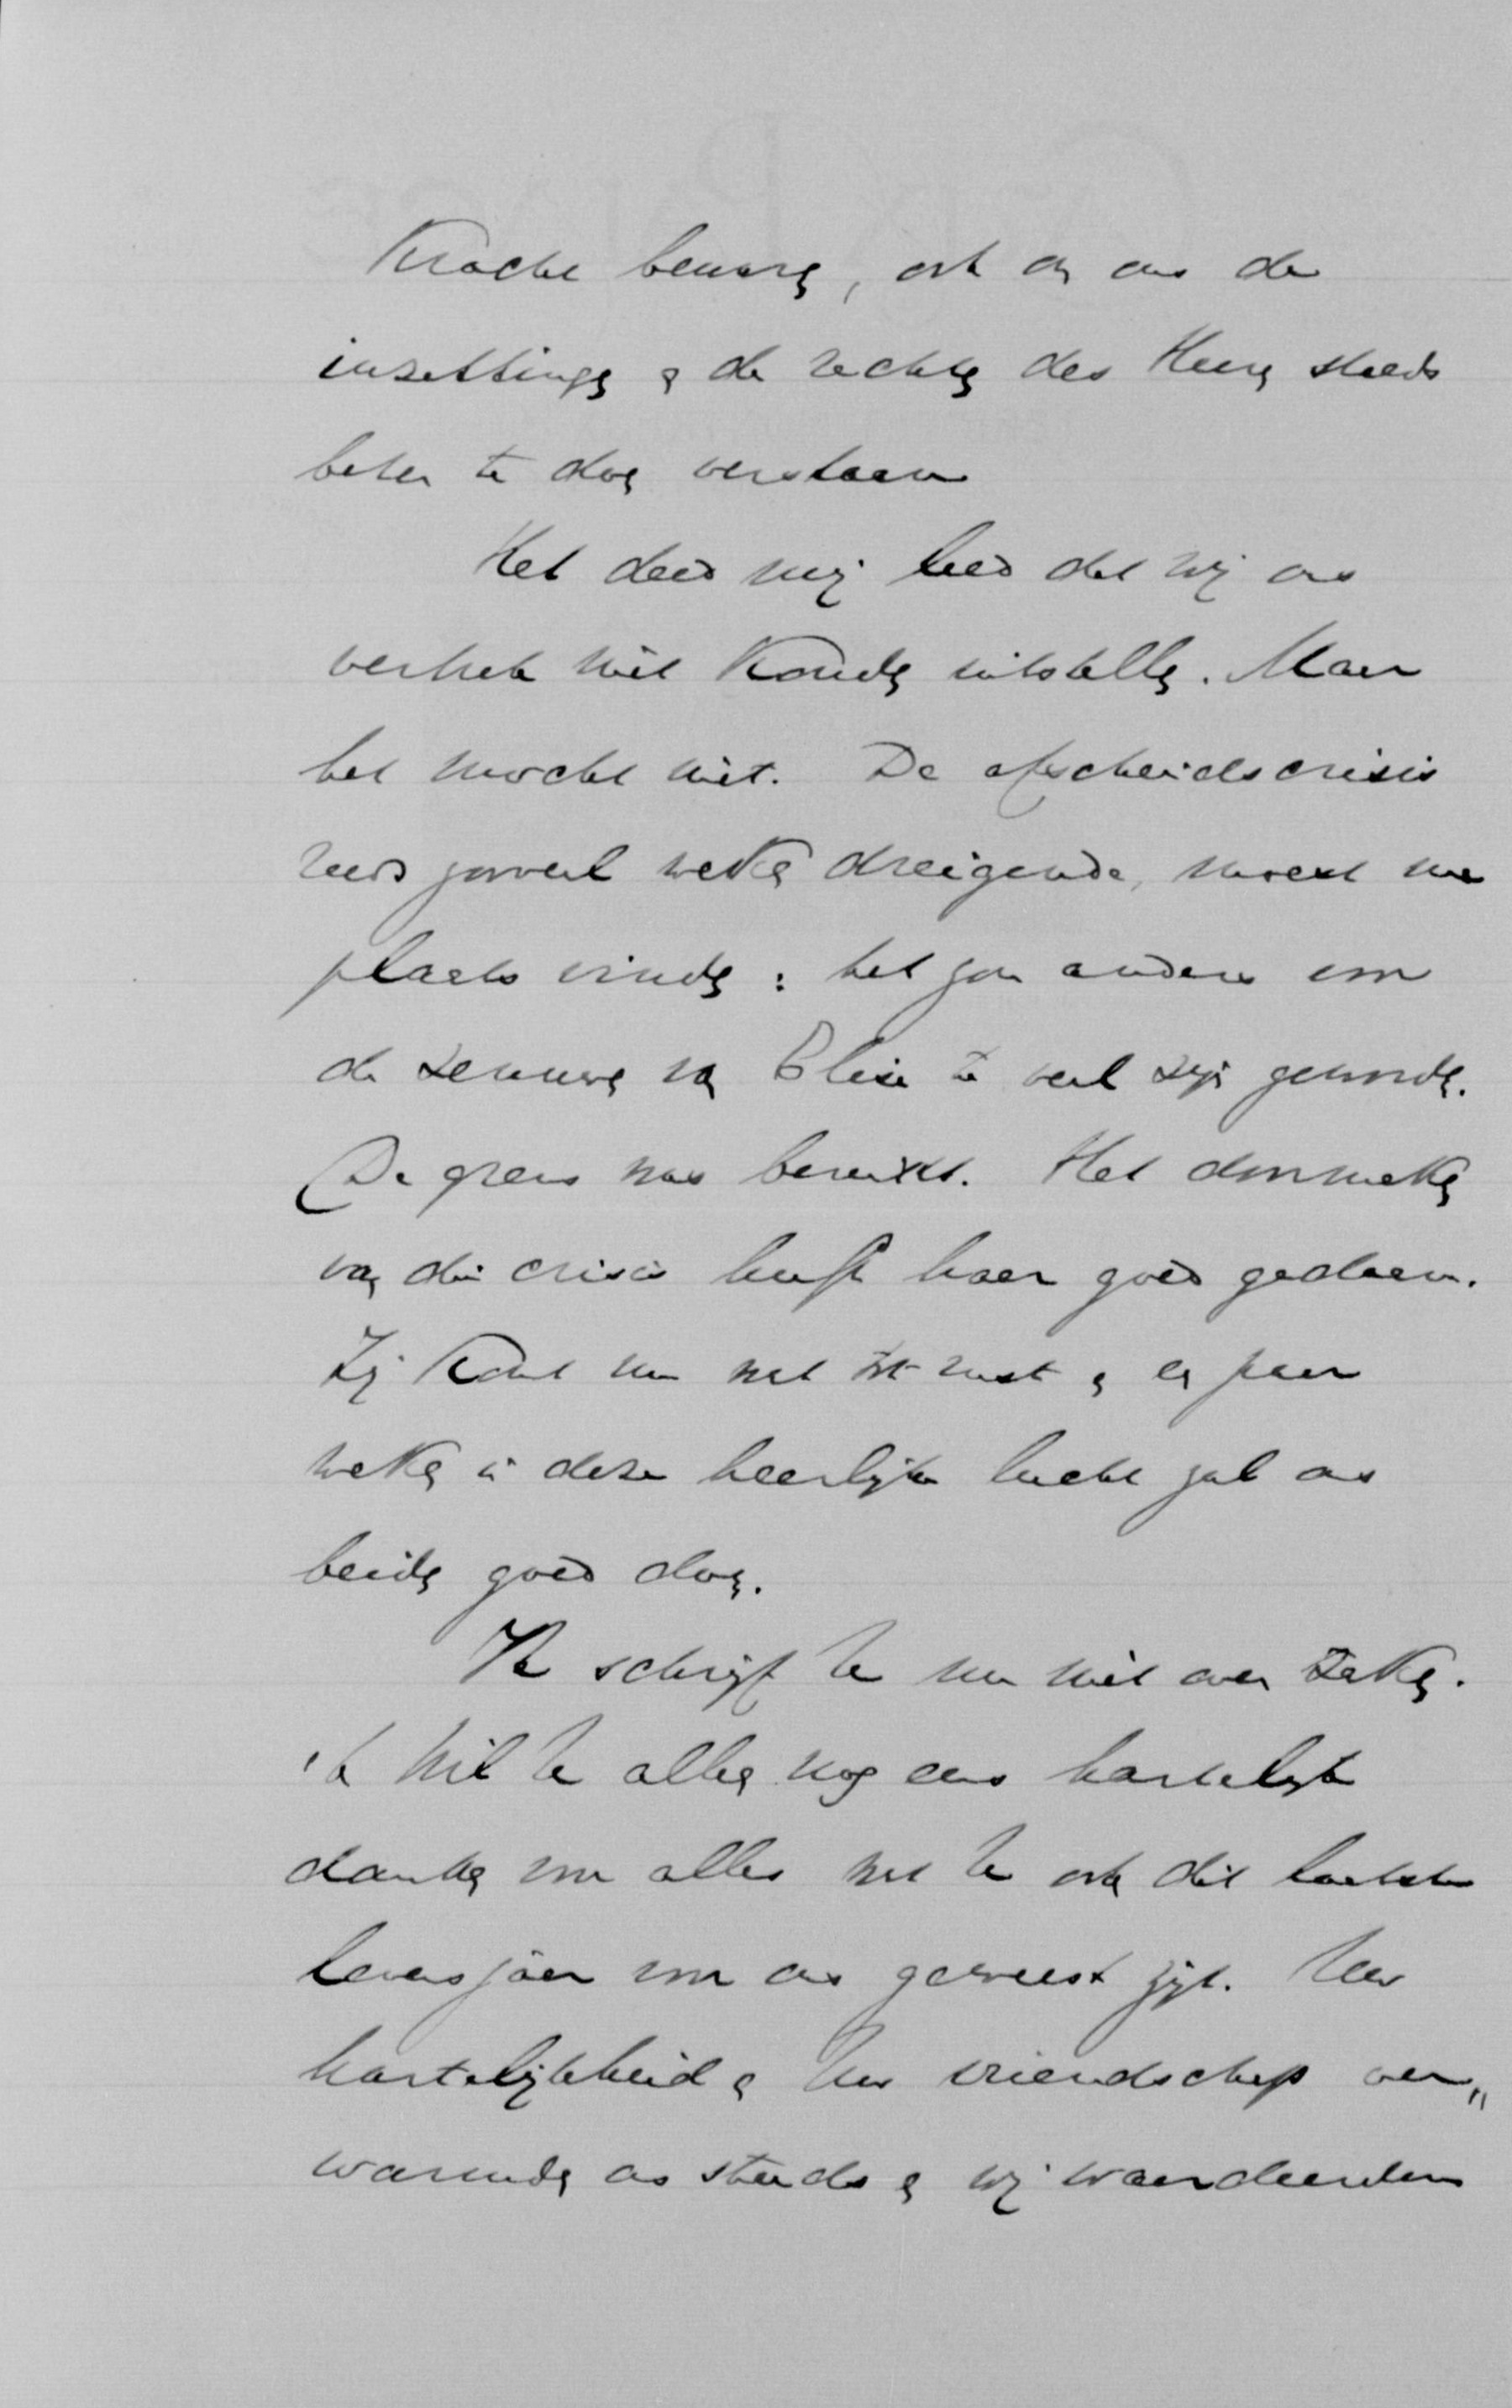 kracht bewezen, ook om ons de
inzettingen en de rechten des Heeren steeds
beter te doen verstaan
Het deed mij leed dat wij ons
vertrek niet konden uitstellen. Maar
het mocht niet. De afscheidscrisis
reeds zooveel weken dreigende, moest nu
plaats vinden: het zou anders voor
de zenuwen van Elise te veel zijn geworden.
De grens was bereikt. Het doormaken
van die crisis heeft haar goed gedaan.
Zij komt nu wat tot rust en een paar
weken in deze heerlijke lucht zal ons
beiden goed doen.
Ik schrijf U nu niet over zaken.
ik wil U allen nog eens hartelijk
danken voor alles wat U ook dit laatste
levensjaar voor ons geweest zijt. Uw
hartelijkheid en Uw vriendschap ver„
warmden ons steeds en wij waardeerden